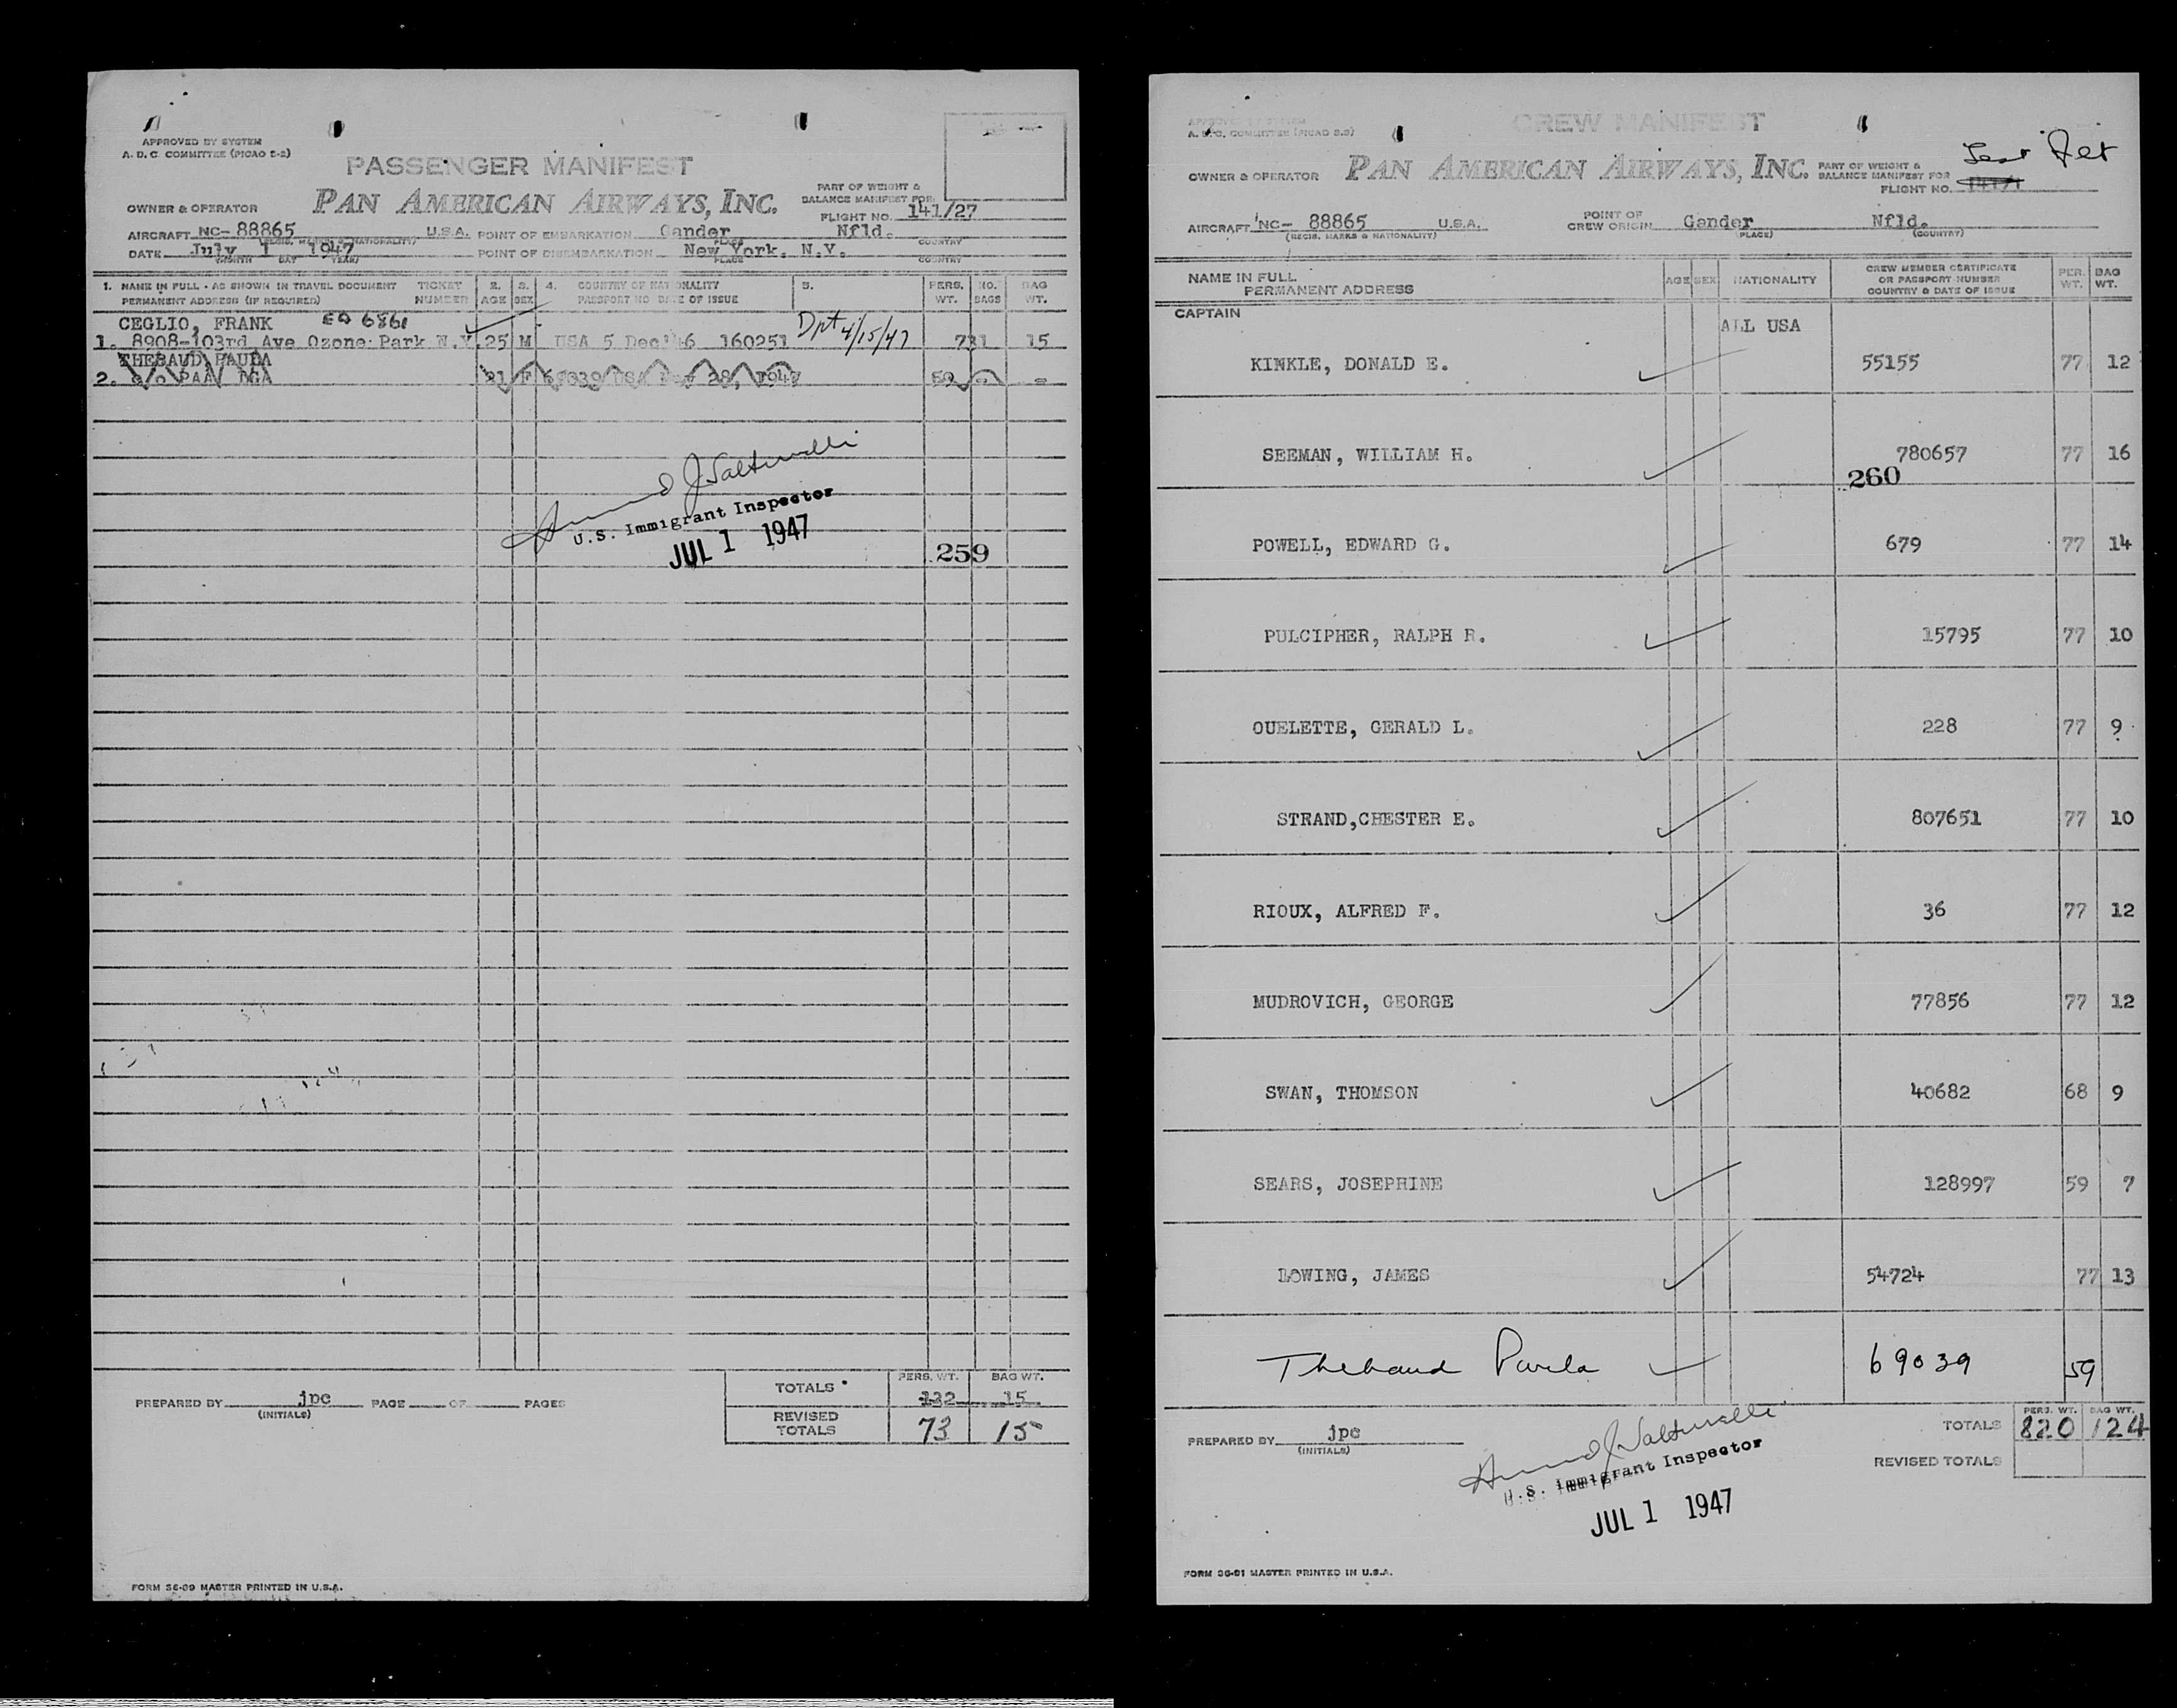 APPROVED BY SYSTEM
A. D. C. COMMITTEE (PICAO 2-2)
PASSENGER MANIFEST
OWNER & OPERATOR PAN AMERICAN AIRWAYS, INC.
PART OF WEIGHT &
BALANCE MANIFEST FOR
FLIGHT NO. 141/27
AIRCRAFT NC- 88865 U.S.A. POINT OF EMBARKATION Gander Nfld.
(REGIS. MARKS & NATIONALITY) PLACE COUNTRY
DATE July 1 1947 POINT OF DISEMBARKATION New York, N.Y.
(MONTH DAY YEAR) PLACE COUNTRY
1. NAME IN FULL - AS SHOWN IN TRAVEL DOCUMENT TICKET 2. 3. 4. COUNTRY OF NATIONALITY 5. PERS. NO. BAG
PERMANENT ADDRESS (IF REQUIRED) NUMBER AGE SEX PASSPORT NO DATE OF ISSUE WT. BAGS WT.
CEGLIO, FRANK EQ 6861
1. 8908-103rd Ave Ozone Park N.Y. 25 M USA 5 Dec '46 160251 Dpt 4/15/47 731 15
THEBAUD, PAULA
2. c/o PAA LGA 21 F 69039 USA 28, 1947 59 - -
U.S. Immigrant Inspector
JUL 1 1947
259
PREPARED BY jpc PAGE OF PAGES
(INITIALS)
PERS. WT. BAG WT.
TOTALS 132 15
REVISED
TOTALS 73 15
FORM 36-89 MASTER PRINTED IN U.S.A.
APPROVED BY SYSTEM
A. D. C. COMMITTEE (PICAO 2-3)
CREW MANIFEST
OWNER & OPERATOR PAN AMERICAN AIRWAYS, INC.
PART OF WEIGHT &
BALANCE MANIFEST FOR
FLIGHT NO. Test Flt
AIRCRAFT NC- 88865 U.S.A. POINT OF
CREW ORIGIN Gander Nfld.
(REGIS. MARKS & NATIONALITY) PLACE) (COUNTRY)
NAME IN FULL
PERMANENT ADDRESS AGE SEX NATIONALITY CREW MEMBER CERTIFICATE
OR PASSPORT NUMBER
COUNTRY & DATE OF ISSUE PER. WT. BAG WT.
CAPTAIN
ALL USA
KINKLE, DONALD E. 55155 77 12
SEEMAN, WILLIAM H. 780657 77 16
260
POWELL, EDWARD G. 679 77 14
PULCIPHER, RALPH R. 15795 77 10
OUELETTE, GERALD L. 228 77 9
STRAND,CHESTER E. 807651 77 10
RIOUX, ALFRED F. 36 77 12
MUDROVICH, GEORGE 77856 77 12
SWAN, THOMSON 40682 68 9
SEARS, JOSEPHINE 128997 59 7
DOWING, JAMES 54724 77 13
Thebaud Paula 69039 59
PREPARED BY jpc
(INITIALS)
PERS. WT. BAG WT.
TOTALS 820 124
REVISED TOTALS
U.S. Immigrant Inspector
JUL 1 1947
FORM 36-91 MASTER PRINTED IN U.S.A.